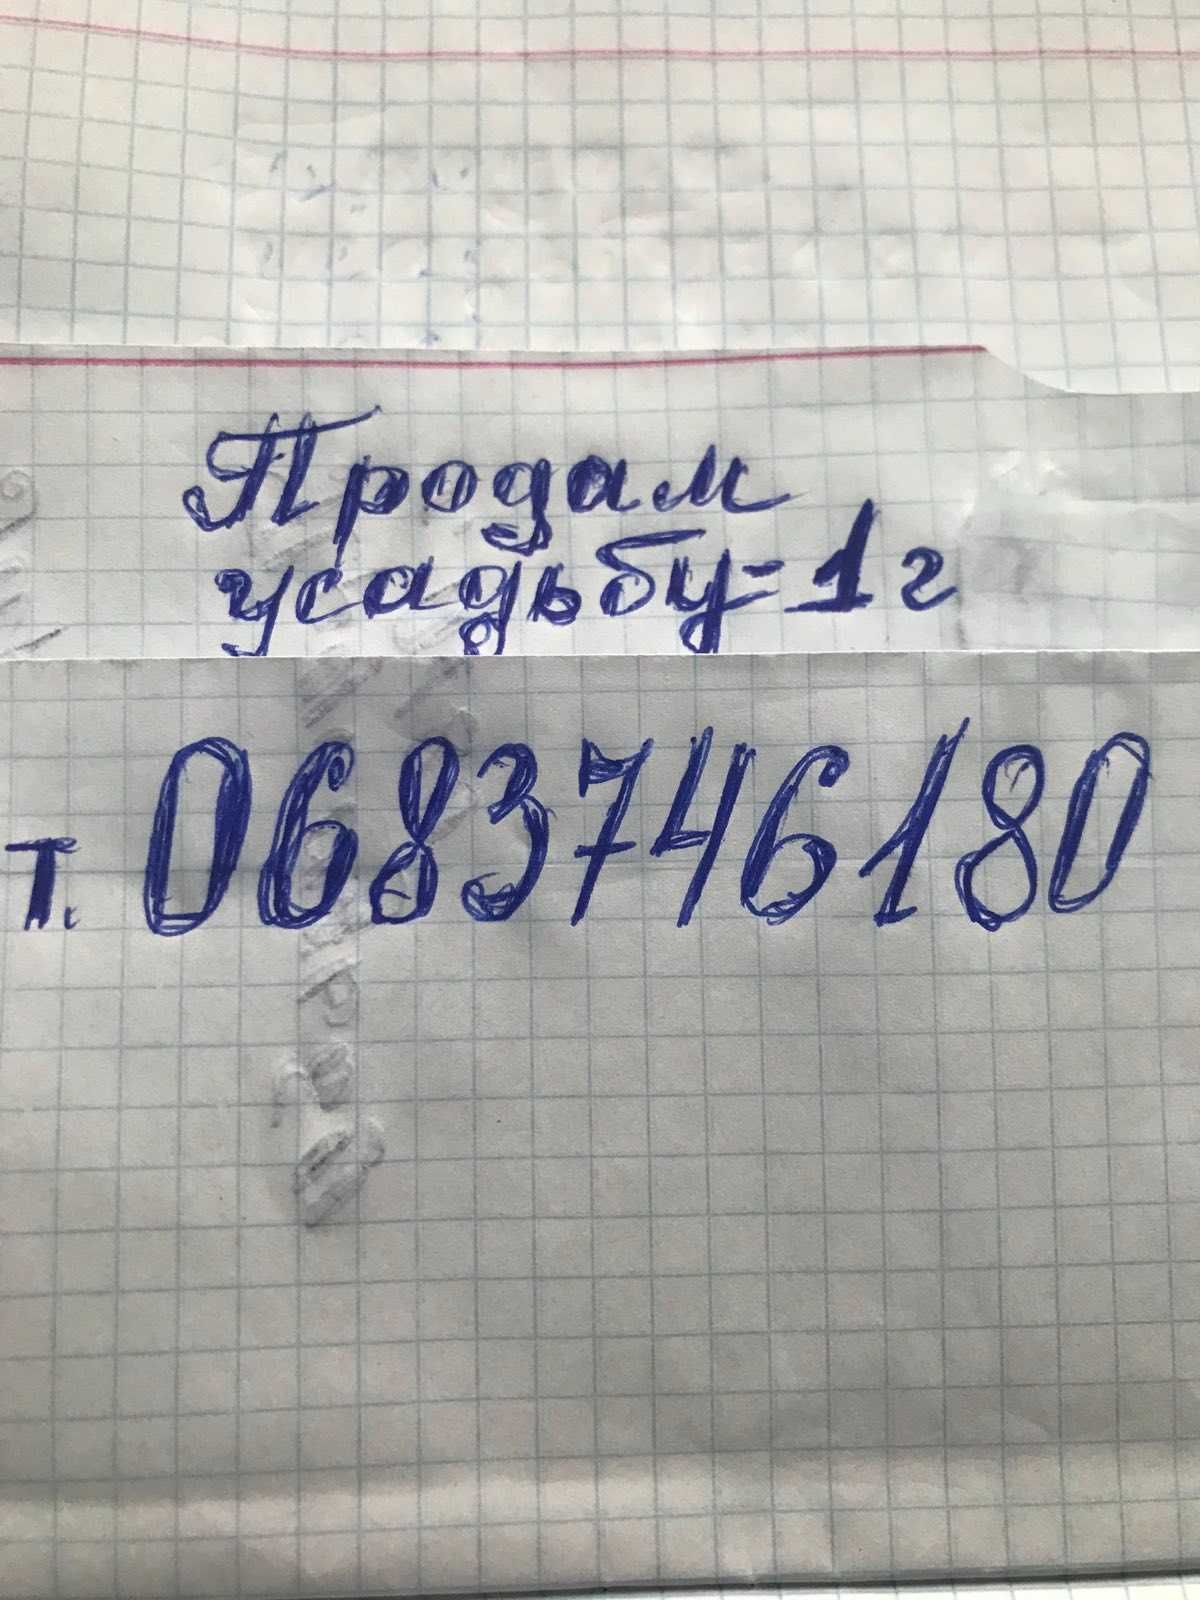 Продам
усадьбу=1г
т. 0683746180